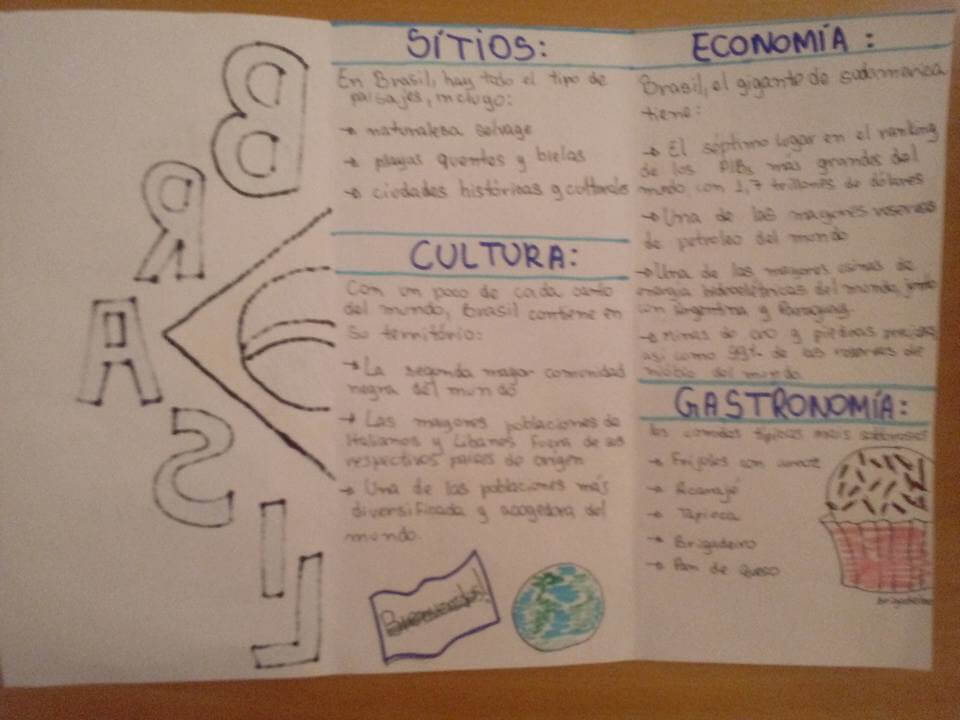 BRASIL
SÍTIOS:
En Brasil, hay todo el tipo de
paisajes, incluyo:
→ naturalesa selvage
→ playas quentes y bielas
→ ciudades históricas y culturales
CULTURA:
Con un poco de cada canto
del mundo, Brasil contiene en
su território:
→ La segunda mayor comunidad
negra del mundo
→ Las mayores poblaciones de
Italianos y Libanos fuera de sus
respectivos países de origen
→ Una de las poblaciones más
diversificada y acogedora del
mundo.
Bienvenidos!
ECONOMÍA:
Brasil, el gigante de sudamerica
tiene:
→ El séptimo lugar en el ranking
de los PIBs más grandes del
mundo con 1,7 trillones de dólares
→ Una de las mayores reservas
de petroleo del mundo
→ Una de las mayores usinas de
energia hidroelétricas del mundo, junto
con Argentina y Paraguay.
→ minas de oro y piedras preciosas
así como 99% de las reservas de
nióbio del mundo.
GASTRONOMÍA:
las comidas típicas mais
→ Frijoles con arroz
→ Acarajé
→ Tapioca
→ Brigadeiro
→ Pan de Queso
brigadeiro